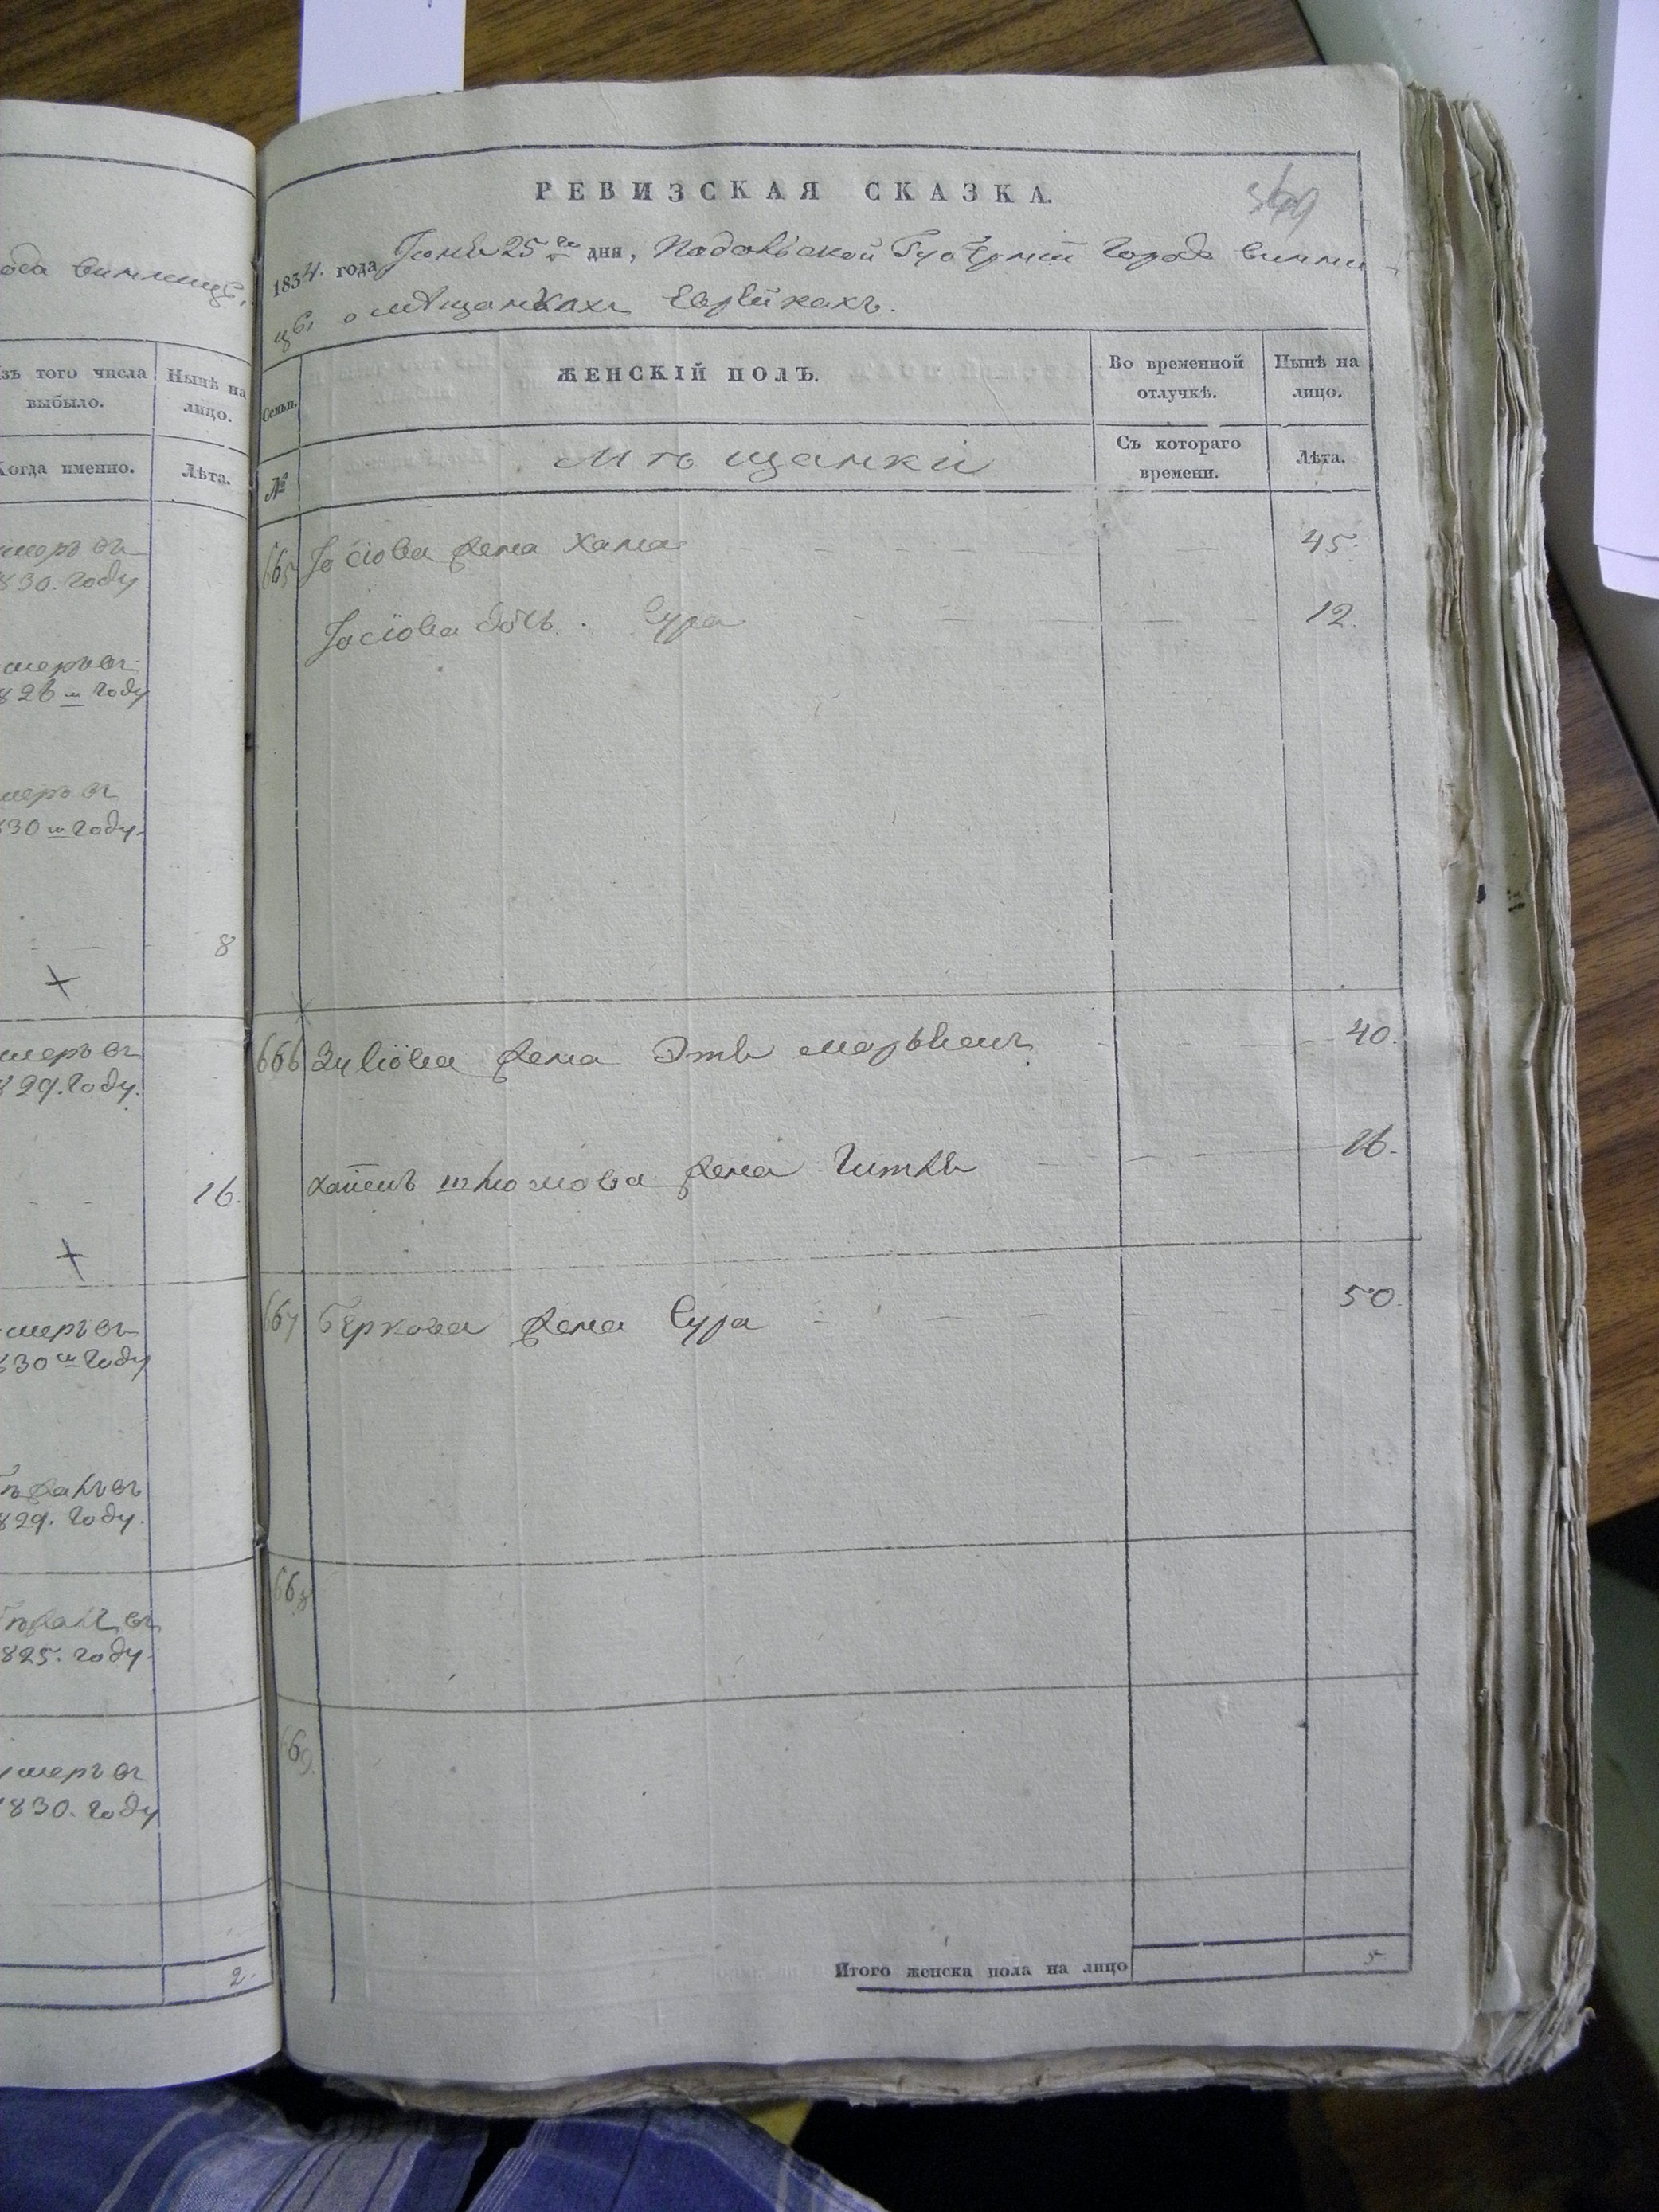 ода Винницѣ,
Изъ того числа выбыло.
Нынѣ на лицо.
Когда именно.
Лѣта.
умеръ въ
1830. году
умеръ въ
1826 м году
умеръ въ
1830 м году
8
умеръ въ
1829. году.
16.
умеръ въ
1830 м году
въ
1829. году.
въ
1825. году
умеръ въ
1830. году
2.
РЕВИЗСКАЯ СКАЗКА.
1834. года Іюня 25 го дня, Подольской Губерніи Города Винни-
цѣ, о мѣщанкахъ Еврейкахъ.
Семьи.
ЖЕНСКІЙ ПОЛЪ.
Во временной отлучкѣ.
Нынѣ на лицо.
№
Мѣщанки
Съ котораго времени.
Лѣта.
665 Іосіова жена Хана 45.
Іосіова дочь. Сура 12.
666 жена 40.
жена Гитля 16.
667 Беркова жена Сура 50.
668
669.
Итого женска пола на лицо 5